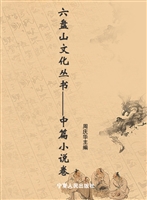 六盘山文化丛书——中篇小说卷
周庆华主编
宁夏人民出版社